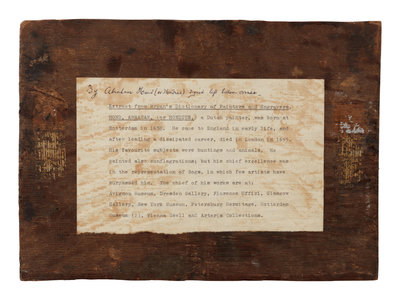 By Abraham Hond (or Hondius) signed left bottom corner
Extract from Bryan's Dictionary of Painters and Engravers.
HOND, ABRAHAM, (or HONDIUS,) a Dutch painter, was born at
Rotterdam in 1638. He came to England in early life, and
after leading a dissipated career, died in London in 1695.
His favourite subjects were huntings and animals. He
painted also conflagrations; but his chief excellence was
in the representation of Dogs, in which few artists have
surpassed him. The chief of his works are at:
Avignon Museum, Dresden Gallery, Florence Uffizi, Glasgow
Gallery, New York Museum, Petersburg Hermitage, Rotterdam
Museum (2), Vienna Gsell and Artaria Collections.